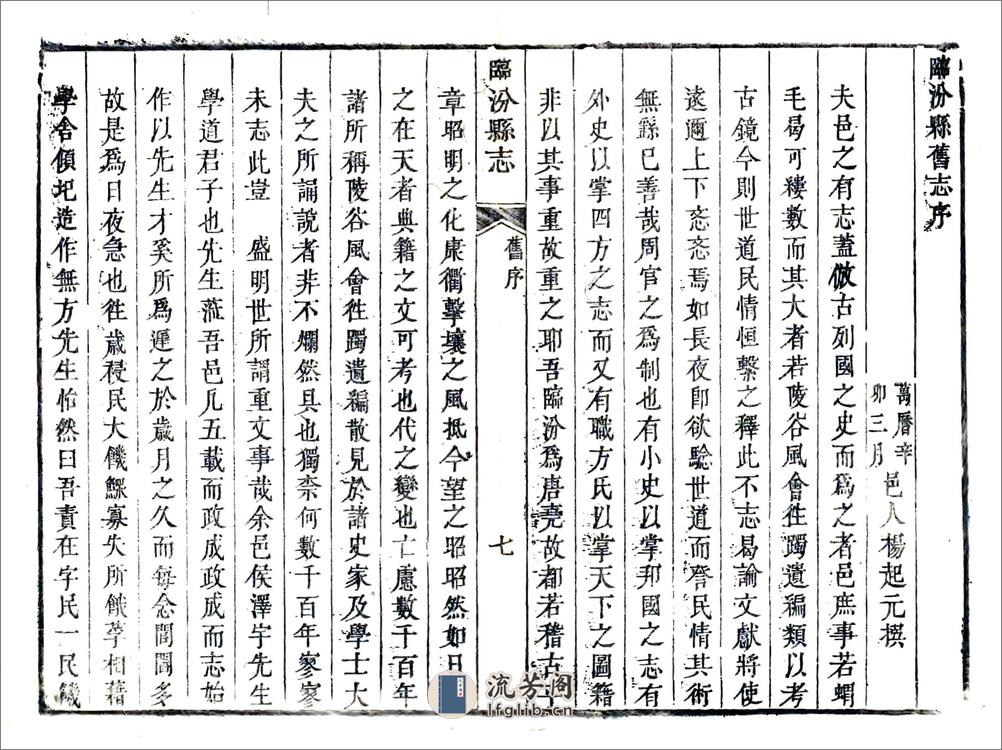 臨汾縣舊志序
萬曆辛
卯三月
邑人楊起元撰
夫邑之有志蓋倣古列國之史而爲之者邑庶事若蝟
毛曷可縷數而其大者若陵谷風會徃躅遺編類以考
古鏡今則世道民情恒繫之釋此不志曷論文獻將使
遠邇上下忞忞焉如長夜卽欲騐世道而詧民情其術
無繇已善哉周官之爲制也有小史以掌邦國之志有
外史以掌四方之志而又有職方氏以掌天下之圖籍
非以其事重故重之耶吾臨汾爲唐堯故都若稽古
臨汾縣志
舊序
七
章昭明之化康衢擊壤之風抵今望之昭昭然如日
之在天者典籍之文可考也代之變也亡慮數千百年
諸所稱陵谷風會徃躅遺編散見於諸史家及學士大
夫之所誦說者非不爛然具也獨柰何數千百年寥寥
未志此豈 盛明世所謂重文事哉余邑侯澤宇先生
學道君子也先生蒞吾邑凡五載而政成政成而志始
作以先生才奚所爲遲之於歲月之久而每念閭閻多
故是爲日夜急也徃歲祲民大饑鰥寡失所餓莩相藉
學舍傾圮造作無方先生怡然曰吾責在字民一民饑
流芳阁
lfglib.cn